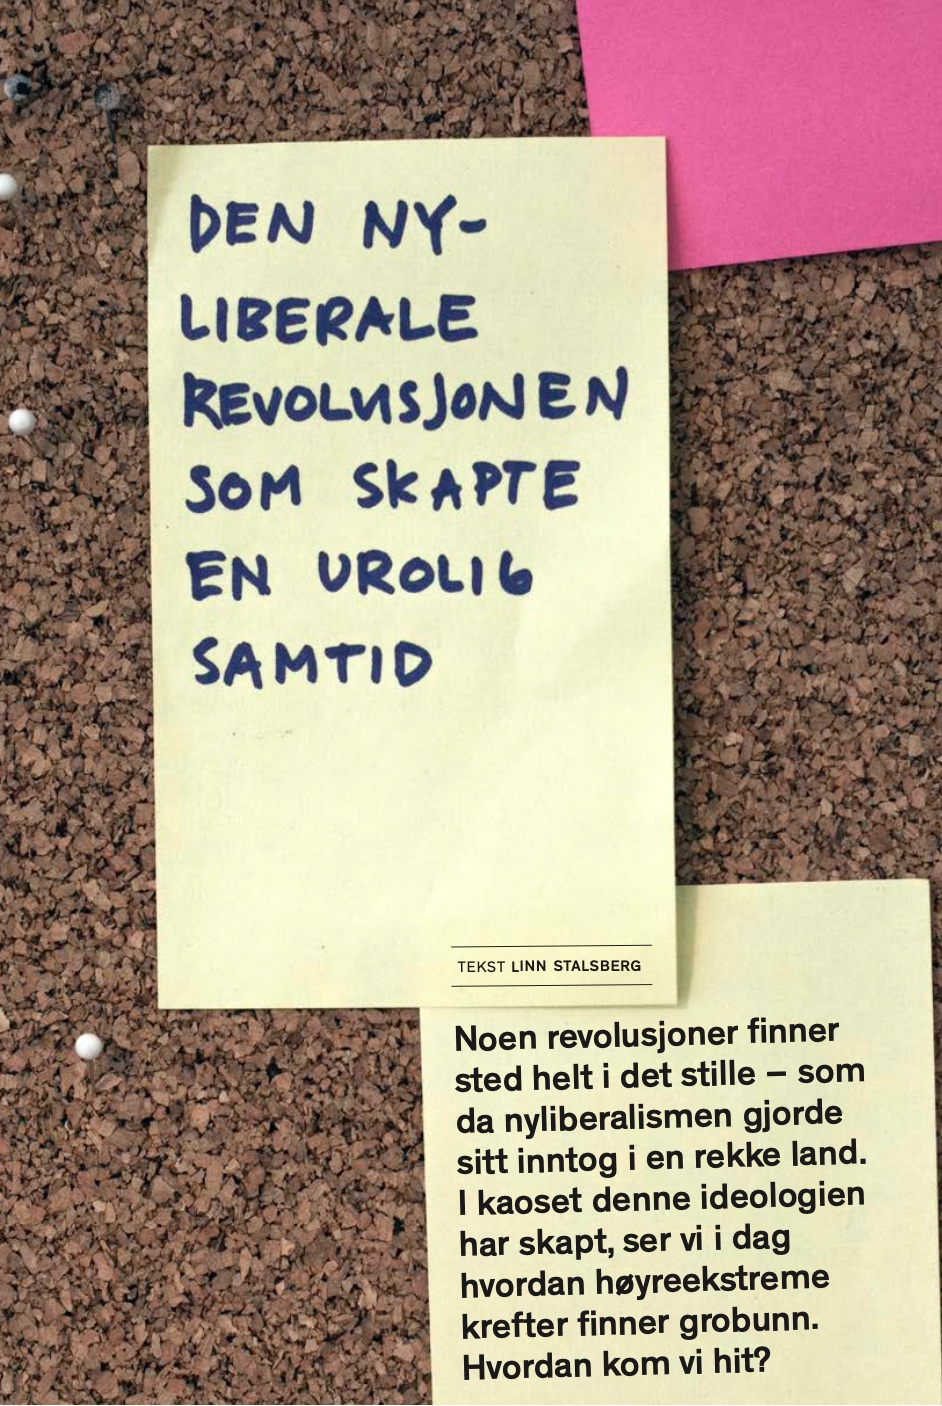 DEN NY-
LIBERALE
REVOLUSJONEN
SOM SKAPTE
EN UROLIG
SAMTID
TEKST LINN STALSBERG
Noen revolusjoner finner
sted helt i det stille – som
da nyliberalismen gjorde
sitt inntog i en rekke land.
I kaoset denne ideologien
har skapt, ser vi i dag
hvordan høyreekstreme
krefter finner grobunn.
Hvordan kom vi hit?